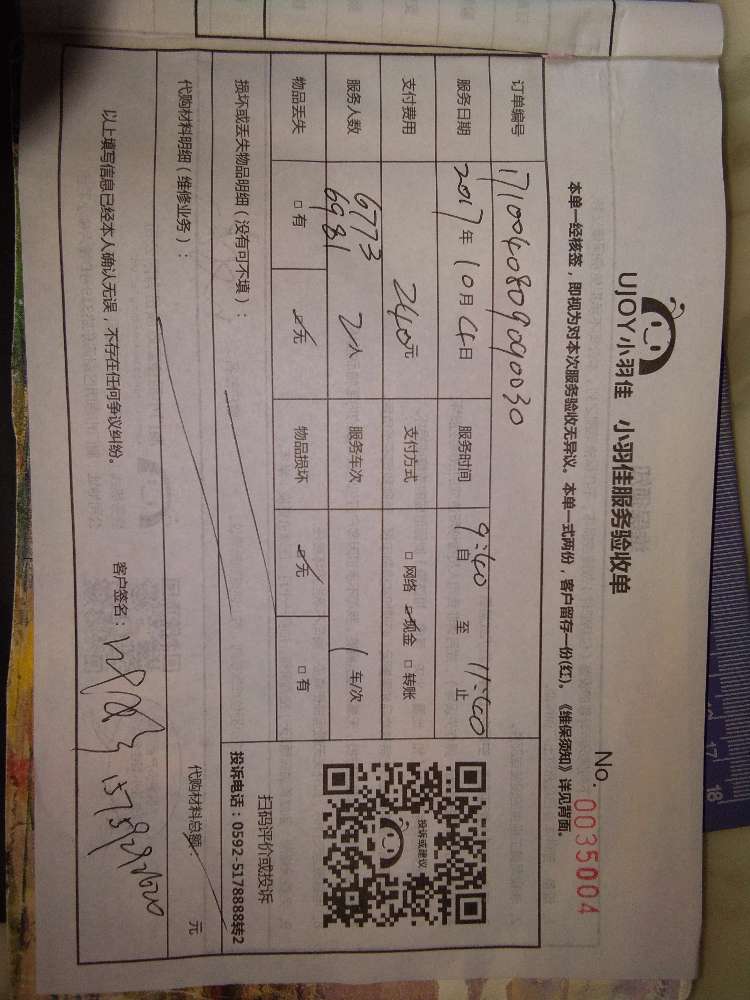 UJOY小羽佳 小羽佳服务验收单
No. 0035004
本单一经核签，即视为对本次服务验收无异议。本单一式两份，客户留存一份(红)。《维保须知》详见背面。
订单编号 1710040809090030
服务日期 2017年10月4日 服务时间 9:40自 至 11:40止
支付费用 240元 支付方式 □网络 ☑现金 □转账
服务人数 6773 6981 2人 服务车次 1车/次
物品丢失 □有 ☑无 物品损坏 ☑无 □有
损坏或丢失物品明细（没有可不填）：
投诉或建议
扫码评价或投诉
投诉电话：0592-5178888转2
代购材料明细（维修业务）：
代购材料总额： 元
以上填写信息已经本人确认无误，不存在任何争议纠纷。
客户签名：
16
17
18